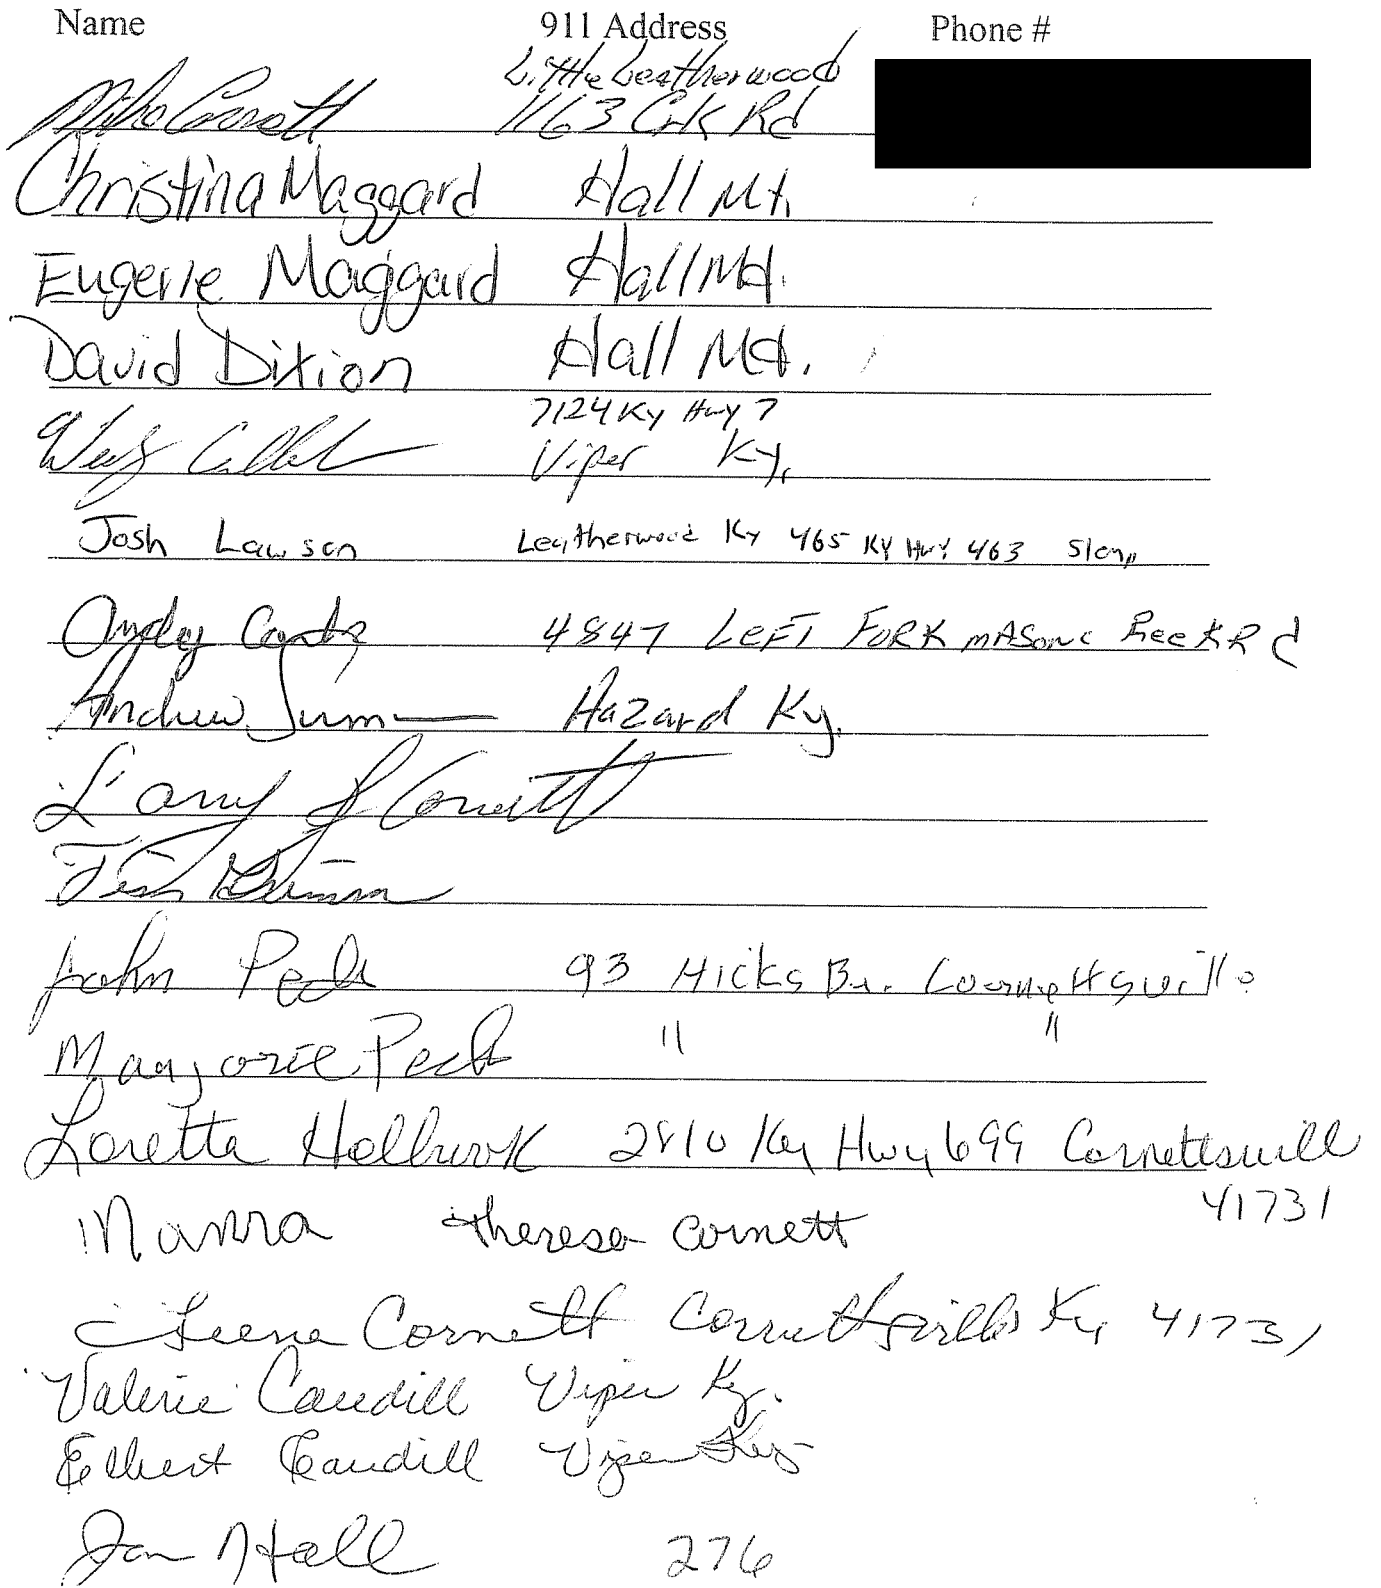 Name 911 Address Phone #
Little Leatherwood
Mike Cornett 1163 Crk Rd
Christina Maggard Hall Mt.
Eugene Maggard Hall Mt.
David Dixion Hall Mt.
7124 Ky Hwy 7
Viper Ky,
Josh Lawson Leatherwood Ky 465 KY Hwy 463 Slemp
Andy 4847 LEFT FORK mASonc Reek R d
Andrew Hazard Ky.
Larry J Cornett
Tim
John Peck 93 Hicks Br. Coornettsville
Marjorie Peck " "
Loretta Holbrook 2810 Ky Hwy 699 Cornettsvill
41731
theresa cornett
Cornett Cornettsville Ky 41731
Valerie Caudill Viper Ky.
Elbert Caudill Viper Ky
Hall 276